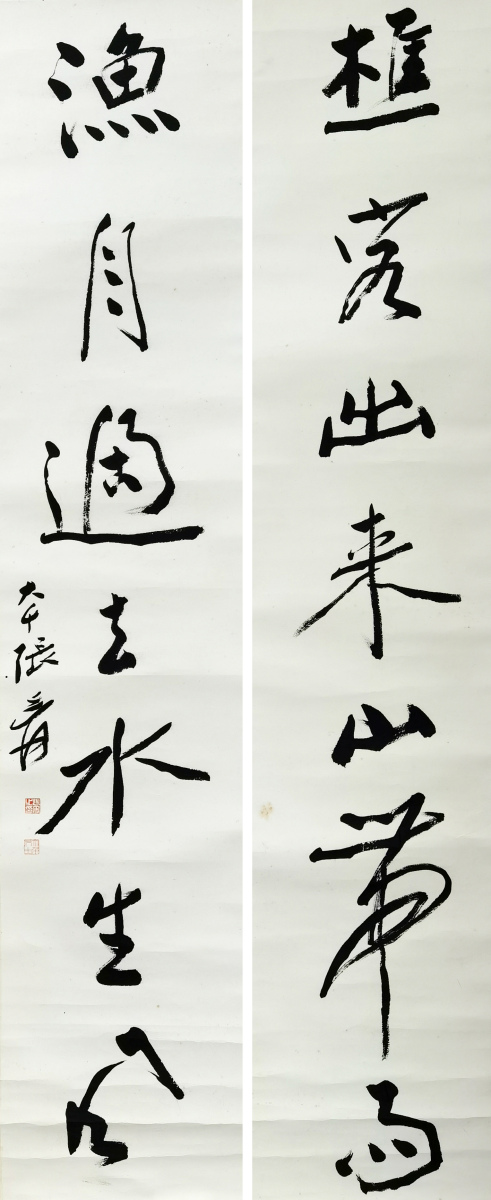 樵客出来山帶雨
漁舟過去水生風
大千張爰